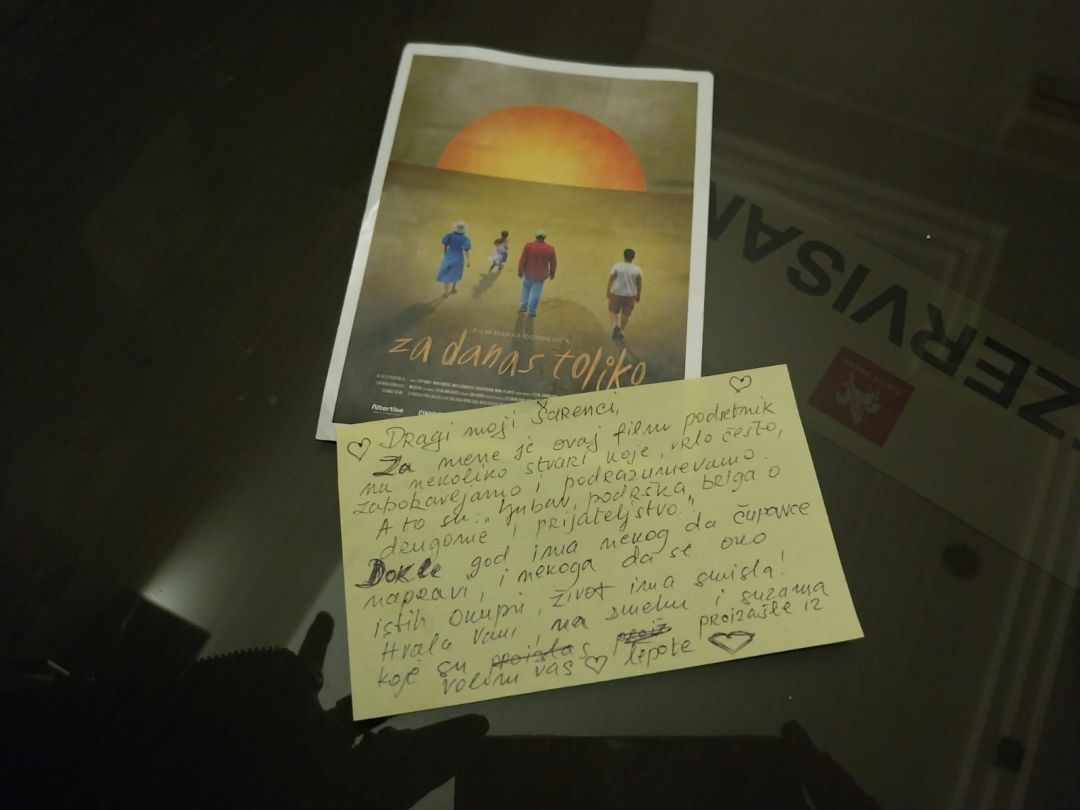 FILM MARKA ĐORĐEVIĆA
za danas toliko
Altertise
Dragi moji Šarenci,
Za mene je ovaj film podsetnik
na nekoliko stvari koje, vrlo često,
zaboravljamo i podrazumevamo.
A to su: "ljubav, podrška, briga o
drugome i prijateljstvo."
Dokle god ima nekog da čupavce
napravi, i nekoga da se oko
istih okupi, život ima smisla!
Hvala vam, na smehu i suzama
koje su proizašle iz
lepote
Volim vas
ZERVISAN